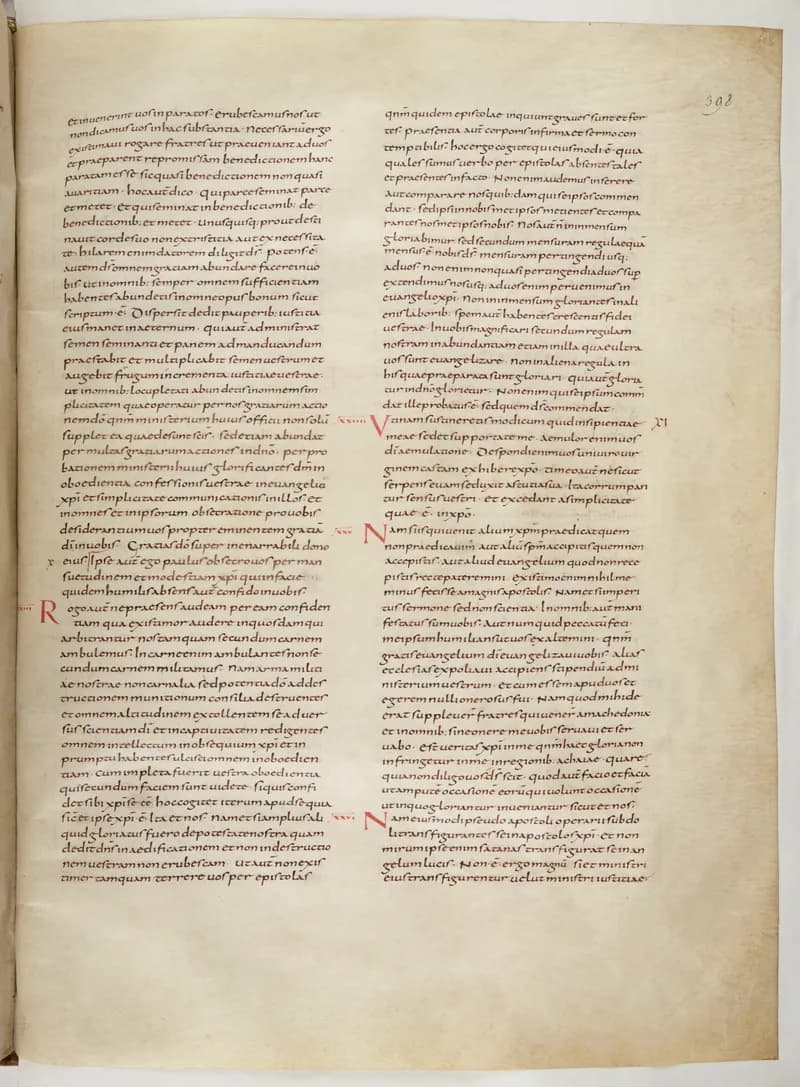 398
et inuenerint uos inparatos· erubescamus nos ut
non dicamus uos inhac substantia· Necessariū ergo
existimaui rogare fratres ut praeueniant aduos
et praeparent repromissam benedictionem hanc
paratam esse sic quasi benedictionem non quasi
auaritiam· hoc aut̄ dico· qui parce seminat parce
et metet· et qui seminat in benedictionib; de
benedictionib; et metet· Unusquisq; prout desti
nauit corde suo non ex tristitia aut ex necessita
te· hilarem enim datorem diligit dš· potens ē
autem dš omnem gratiam abundare facere in uo
bis· ut in omnib; semper omnem sufficientiam
habentes abundetis in omne opus bonum sicut
scriptum ē· Dispersit dedit pauperib; iustitia
eius manet in aeternum· qui aut̄ administrat
semen seminanti et panem ad manducandum
praestabit et multiplicabit semen uestrum et
augebit frugum incrementa iustitiae uestrae·
ut in omnib; locupletati abundetis in omnem sim
plicitatem quae operatur per nos gratiarum actio
nem dō· qnm̄ ministerium huius officii non solū
supplet ea quae desunt scīs· sed etiam abundat
per multas gratiarum actiones in dnō· per pro
bationem ministerii huius glorificantes dm̄ in
oboedientia confessionis uestrae in euangeliū
xpī et simplicitate communicationis in illos et
in omnes et in ipsorum obsecratione pro uobis
desiderantium uos propter eminentem gratiā
dī in uobis· Gratias dō super inenarrabili dono
x eius· Ipse aut̄ ego paulus obsecro uos per man
suetudinem et modestiam xpī qui in facie
quidem humilis absens aut̄ confido in uobis·
Rogo aut̄ ne praesens audeam per eam confiden
tiam qua existimor audere in quosdam qui
arbitrantur nos tamquam secundum carnem
ambulemus· In carne enim ambulantes non se
cundum carnem militamus· Nam arma militi
ae nostrae non carnalia sed potentia dō ad des
tructionem munitionum consilia destruentes
et omnem altitudinem extollentem se aduer
sus scientiam dī et in captiuitatem redigentes
omnem intellectum in obsequium xpī et in
promptu habentes ulcisci omnem inoboedien
tiam· cum impleta fuerit uestra oboedientia
quae secundum faciem sunt uidete· si quis confi
det sibi xpī se eē· hoc cogitet iterum apud se quia
sic̄ et ipse xpī ē· Ita et nos· Nam et si amplius ali
quid gloriatus fuero de potestate nostra quam
dedit dns̄ in aedificationem et non in destructio
nem uestram non erubescam· Ut aut̄ non exis
timer tamquam terrere uos per epistolas
qnm̄ quidem epistolae inquiunt graues sunt et for
tes· praesentia aut̄ corporis infirma et sermo con
temptibilis· hoc ergo cogitet qui eiusmodi ē· quia
quales sumus uerbo per epistolas absentes tales
et praesentes in facto· Non enim audemus inserere
aut comparare nos quib;dam qui se ipsos commen
dant· sed ipsi in nobismet ipsos metientes et compa
rantes nosmet ipsos nobis· Nos aut̄ n in inmensum
gloriabimur sed secundum mensuram regulae quā
mensus ē nobis dš· mensuram pertingendi usq;
ad uos· non enim non quasi pertingendi ad uos sup̄
extendimus nos usq; ad uos enim peruenimus in
euangelio xpī· non in inmensum gloriantes in ali
enis laborib; spem aut̄ habentes crescentis fidei
uestrae· In uobis magnificari secundum regulam
nostram in abundantiam etiam in illa quae ultra
uos sunt euangelizare· non in aliena regula in
his quae praeparata sunt gloriari· qui aut̄ gloria
tur in dnō glorietur· Non enim qui se ipsum comm̄
dat ille probatus ē· sed quem dš commendat·
Utinam sustineretis modicum quid insipientiae XI
meae sed et supportate me· Aemulor enim uos
dī aemulatione· Despondi enim uos uni uiro uir
ginem castam exhibere xpo· timeo aut̄ ne sicut
serpens euam seduxit astutia sua· Ita corrumpan
tur sensus uestri· et excedant a simplicitate
quae ē· in xpō·
Nam si is qui uenit alium xpm̄ praedicat quem
non praedicauim̄· aut aliū spm̄ accipitis quem non
accepistis· aut aliud euangelium quod non rece
pistis recte pateremini· existimo enim nihil me
minus fecisse a magnis apostolis· Nam et si imperi
tus sermone sed non scientia· In omnib; aut̄ mani
festatus sum uobis· Aut numquid peccatū feci·
me ipsum humilians ut uos exaltemini· qnm̄
gratis euangelium dī euangelizaui uobis· alias
ecclesias expoliaui accipiens stipendiū ad mi
nisterium uestrum· et cum essem apud uos et
egerem nulli onerosus fui· Nam quod mihi de
erat suppleuer̄ fratres qui uener̄ a machedonia
et in omnib; sine onere me uobis seruaui et ser
uabo· est ueritas xpī in me qnm̄ haec gloria non
infringetur in me in regionib; achaiae· quare
quia non diligo uos dš scit· quod aut̄ facio et faciā
ut amputē occasionē eorū qui uolunt occasionē
ut in quo gloriantur inueniantur sicut et nos·
Nam eiusmodi pseudo apostoli operarii subdo
li transfigurantes se in apostolos xpī· et non
mirum ipse enim satanas transfigurat se in an
gelum lucis· Non ē· ergo magnū si et ministri
eius transfigurentur uelut ministri iustitiae·